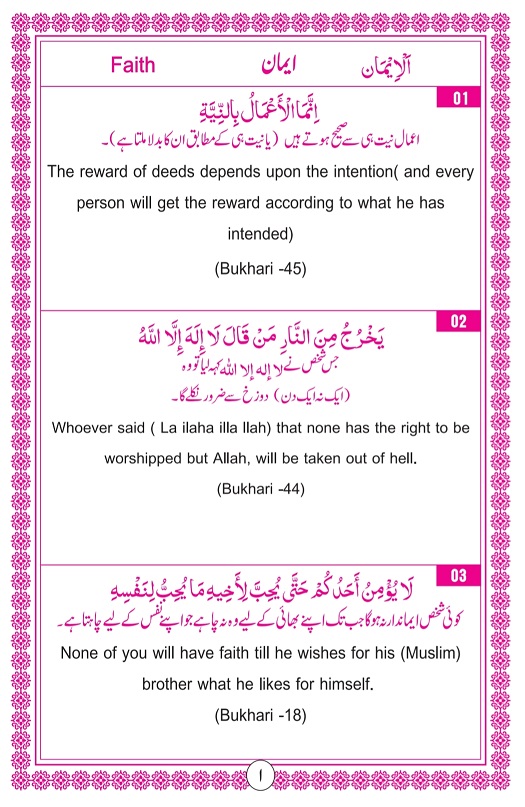 Faith ایمان اَلْاِیْمَان
01
اِنَّمَا الْأَعْمَالُ بِالنِّيَّةِ
اعمال نیت ہی سے صحیح ہوتے ہیں (یا نیت ہی کے مطابق ان کا بدلا ملتا ہے)۔
The reward of deeds depends upon the intention( and every
person will get the reward according to what he has
intended)
(Bukhari -45)
02
يَخْرُجُ مِنَ النَّارِ مَنْ قَالَ لَا إِلَهَ إِلَّا اللَّهُ
جس شخص نے لا إله إلا الله کہہ لیا تو وہ
(ایک نہ ایک دن) دوزخ سے ضرور نکلے گا۔
Whoever said ( La ilaha illa llah) that none has the right to be
worshipped but Allah, will be taken out of hell.
(Bukhari -44)
03
لَا يُؤْمِنُ أَحَدُكُمْ حَتَّى يُحِبَّ لِأَخِيهِ مَا يُحِبُّ لِنَفْسِهِ
کوئی شخص ایماندار نہ ہوگا جب تک اپنے بھائی کے لیے وہ نہ چاہے جو اپنے نفس کے لیے چاہتا ہے۔
None of you will have faith till he wishes for his (Muslim)
brother what he likes for himself.
(Bukhari -18)
۱